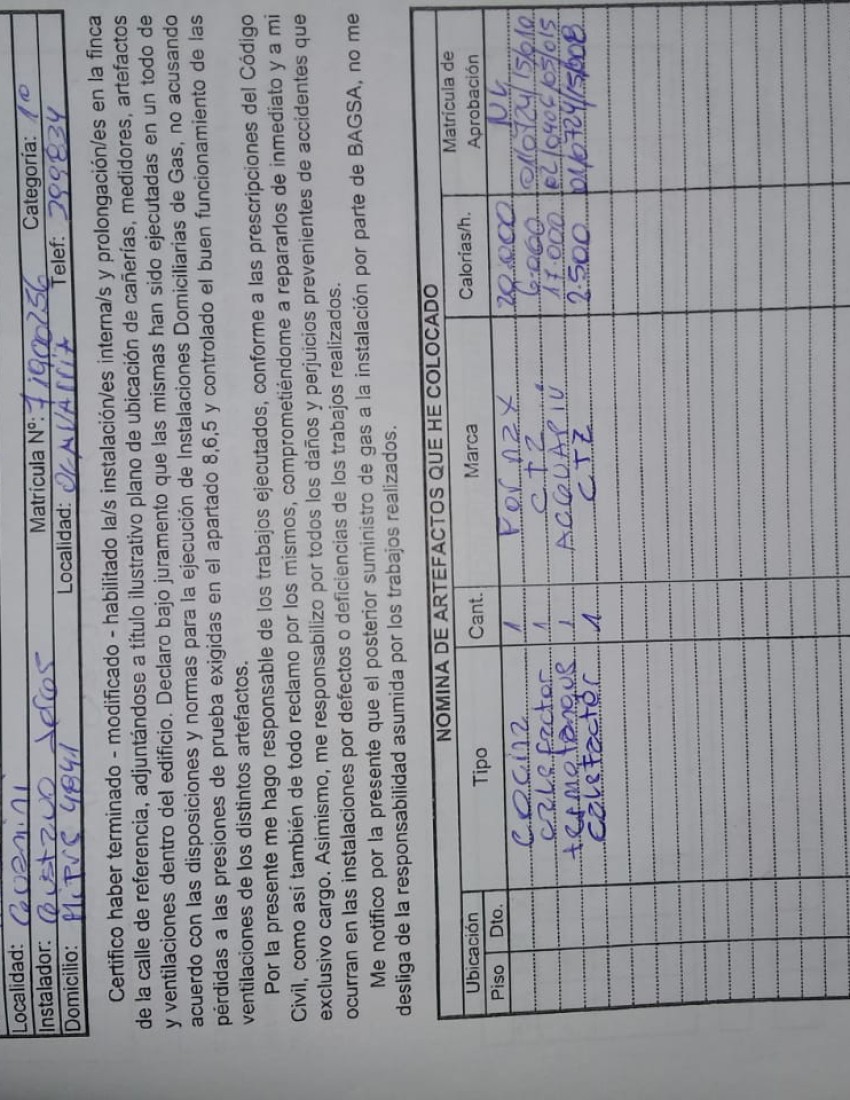 Localidad:
Instalador: Matrícula Nº: 71900256 Categoría: 1ª
Domicilio: 4841 Localidad: Telef: 399834
Certifico haber terminado - modificado - habilitado la/s instalación/es interna/s y prolongación/es en la finca
de la calle de referencia, adjuntándose a título ilustrativo plano de ubicación de cañerías, medidores, artefactos
y ventilaciones dentro del edificio. Declaro bajo juramento que las mismas han sido ejecutadas en un todo de
acuerdo con las disposiciones y normas para la ejecución de Instalaciones Domiciliarias de Gas, no acusando
pérdidas a las presiones de prueba exigidas en el apartado 8,6,5 y controlado el buen funcionamiento de las
ventilaciones de los distintos artefactos.
Por la presente me hago responsable de los trabajos ejecutados, conforme a las prescripciones del Código
Civil, como así también de todo reclamo por los mismos, comprometiéndome a repararlos de inmediato y a mi
exclusivo cargo. Asimismo, me responsabilizo por todos los daños y perjuicios prevenientes de accidentes que
ocurran en las instalaciones por defectos o deficiencias de los trabajos realizados.
Me notifico por la presente que el posterior suministro de gas a la instalación por parte de BAGSA, no me
desliga de la responsabilidad asumida por los trabajos realizados.
NOMINA DE ARTEFACTOS QUE HE COLOCADO
Ubicación Tipo Cant. Marca Calorías/h. Matrícula de Aprobación
Piso Dto.
cocina 1 20.000
calefactor 1 CTZ 6.000 01/0724/15/010
termotanque 1 17.000 02/0406/05/015
calefactor 1 CTZ 2.500 01/0724/15/008